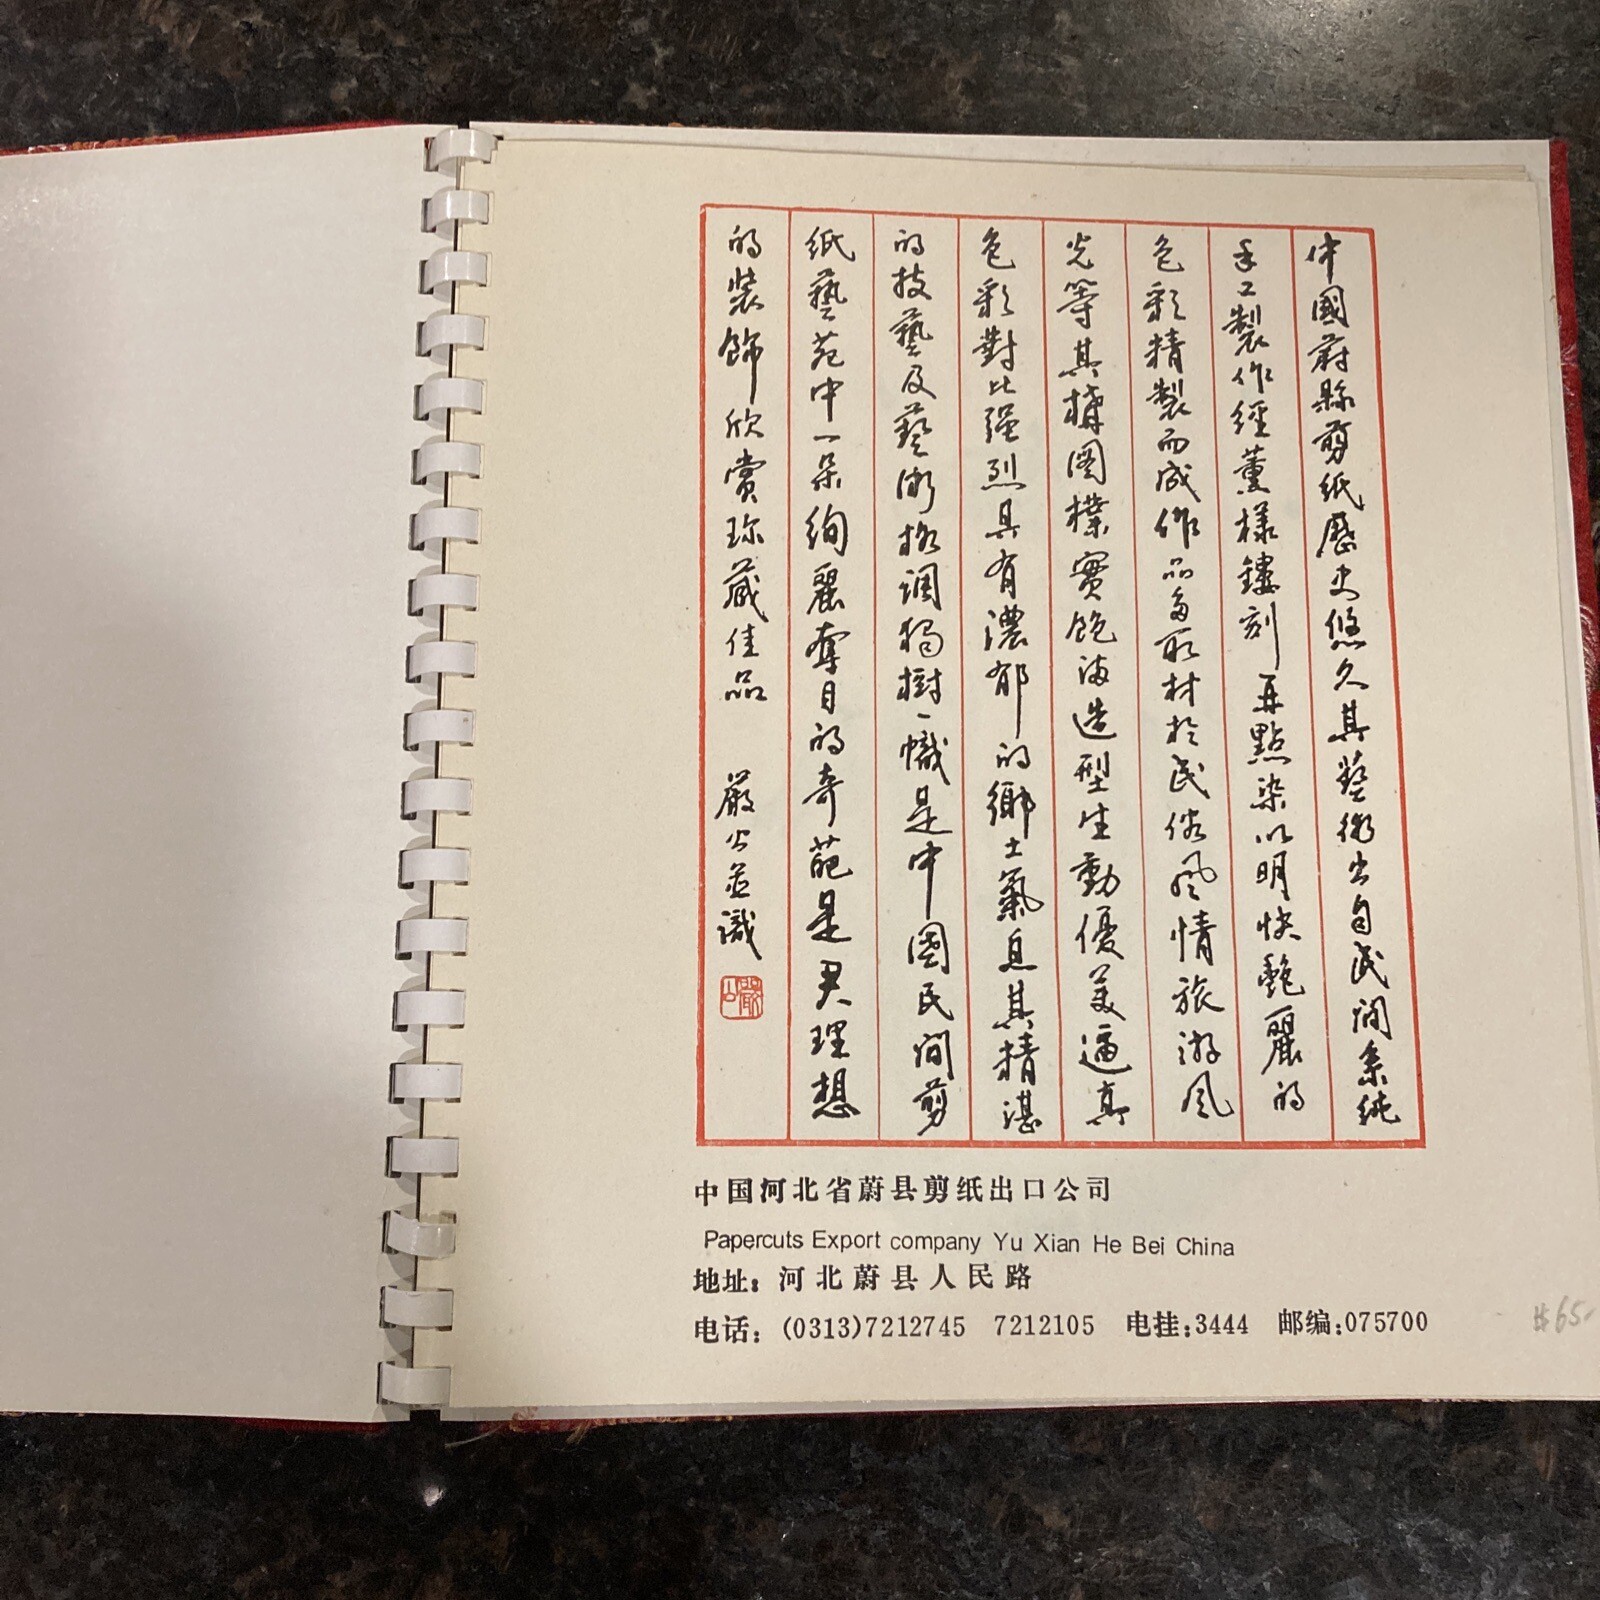 中國蔚縣剪纸歷史悠久其藝術出自民间系純
手工製作經薰樣鏤刻再點染以明快艷麗的
色彩精製而成作品多取材於民俗風情旅游風
光等其構圖樸實飽满造型生動優美逼真
色彩對比强烈具有濃郁的鄉土氣息其精湛
的技藝及藝術格调獨樹一幟是中國民间剪
纸藝苑中一朵絢麗奪目的奇葩是尹理想
的装飾欣賞珎藏佳品 嚴公並識
中国河北省蔚县剪纸出口公司
Papercuts Export company Yu Xian He Bei China
地址：河北蔚县人民路
电话：(0313)7212745 7212105 电挂：3444 邮编：075700